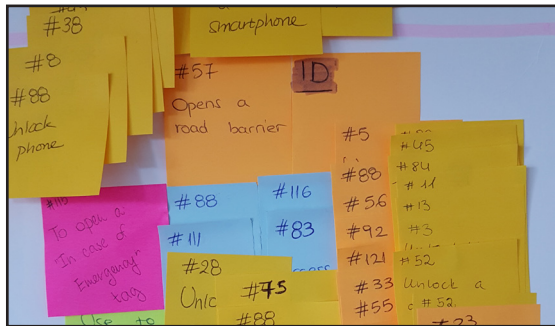 #38
#8
#88
Unlock
phone
smartphone
#57
Opens a
road barrier
ID
#5
#88
#56
#92
#121
#33
#55
#45
#84
#11
#13
#3
#52
Unlock a
#52
#23
#115
To open a
In case of
Emergency
tag
#88
#111
#116
#83
#28
#75
#88
Use to